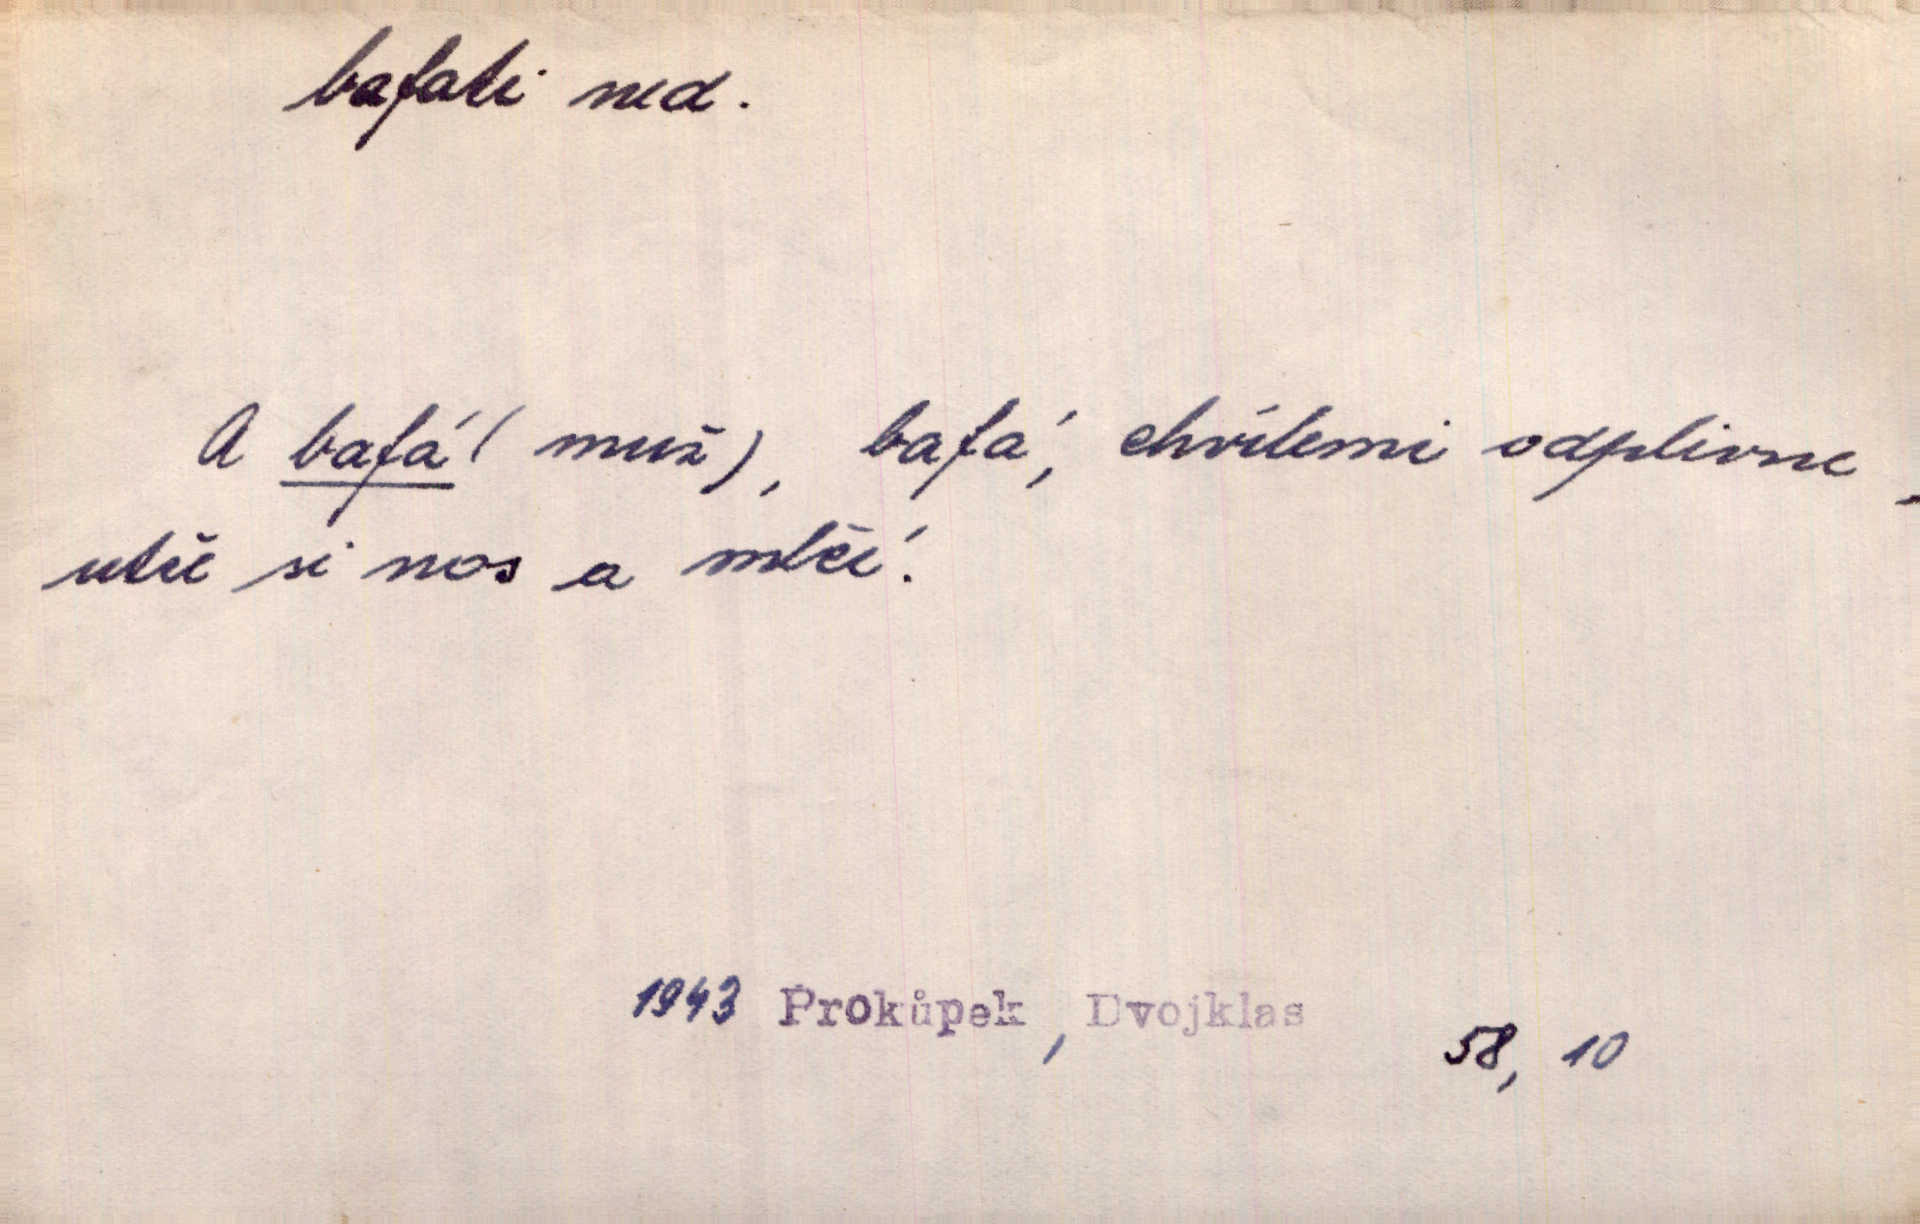 bafati ned.
A bafá (muž), bafá, chvílemi odplivne,
utře si nos a mlčí.
1943 Prokůpek, Dvojklas
58, 10